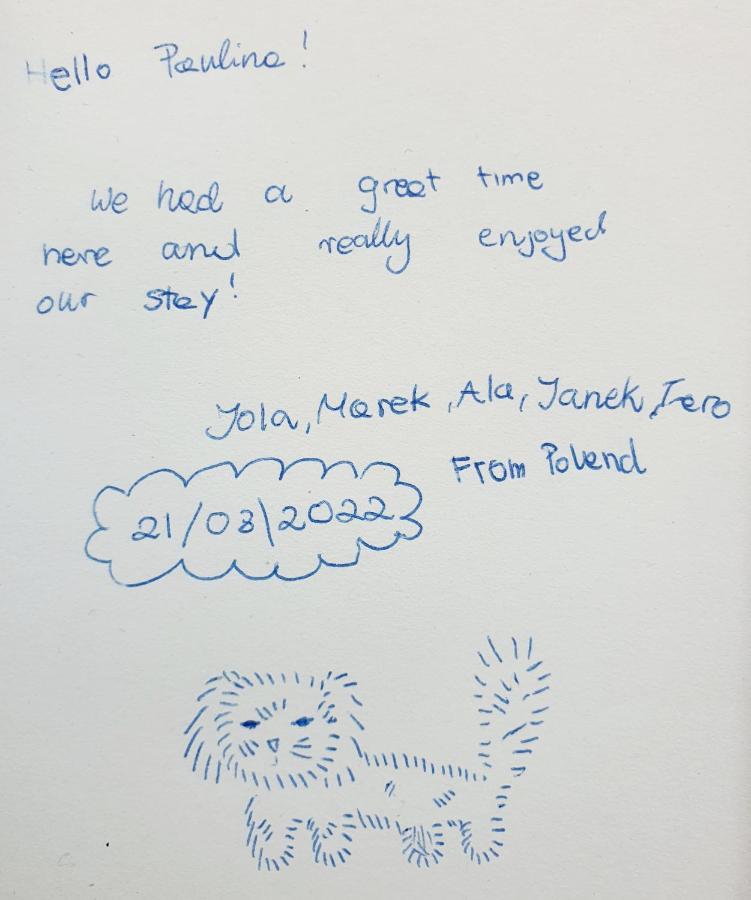 Hello Paulina!
We had a great time
here and really enjoyed
our stay!
Jola, Marek, Ala, Janek,
From Poland
21/08\2022